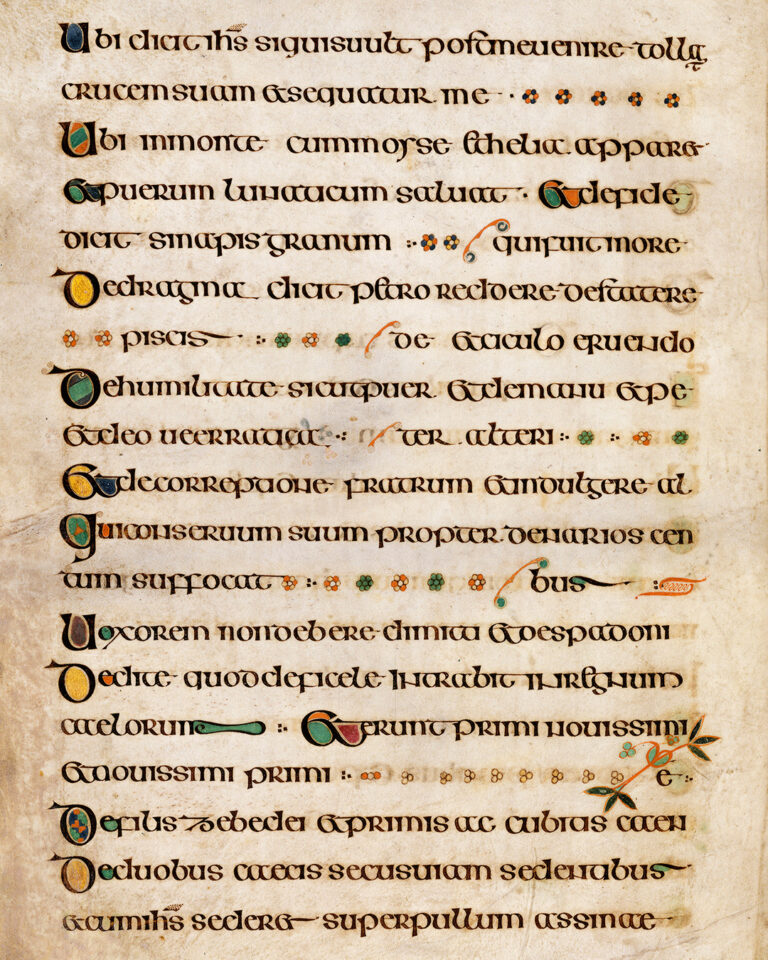 Ubi dicit ihs siquisuult posτmeuenire tollat
crucemsuam etsequatur me
Ubi inmonte cummoyse ethelia apparet
etpuerum lunaticum saluat · etdefide
dicit sinapisgranum quifuitmore
Dedragma dicit petro reddere destatere
piscis de etoculo eruendo
Dehumilitate sicutpuer etdemanu etpe
etdeo uecrratica ter alteri
etdecorreptione fratrum etindulgere al
quiconseruum suum propter denarios cen
tum suffocat bus
Uxorem nondebere dimitti etdespadoni
Dedite quoddeficele intrabit inregnum
caelorum eterunt primi nouissimi
etnouissimi primi e
Defilis zebedei etprimis ac cubitis caen
Deduobus caecis secusuiam sedentabus
etcumihs sederet superpullum assinae